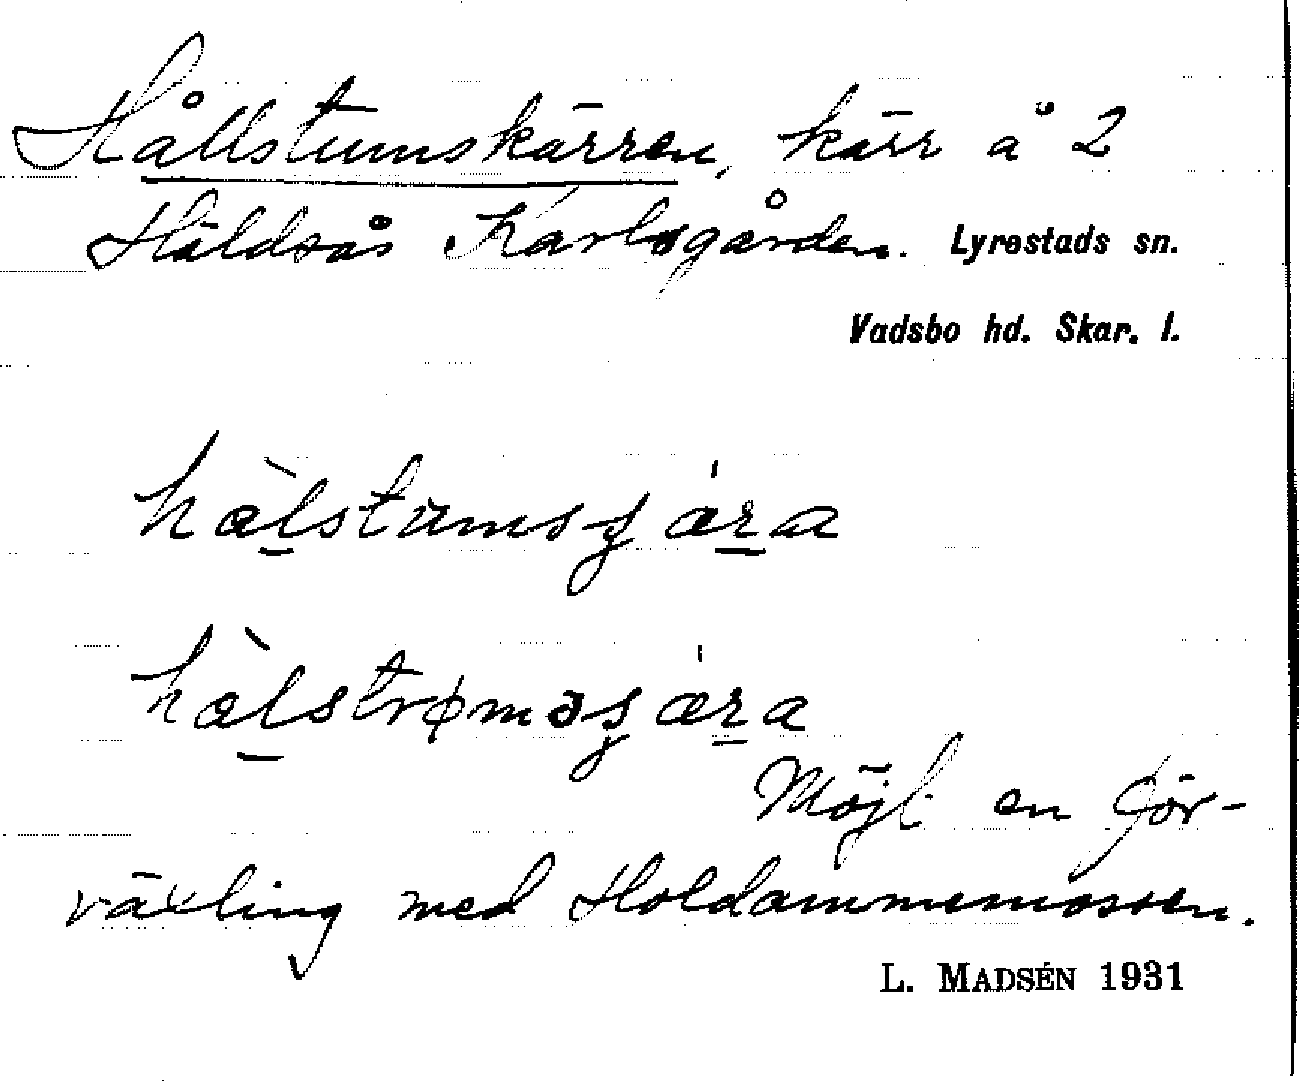 Hållstumskärren, kärr å 2
Häldsås Karlsgården. Lyrestads sn.
Vadsbo hd. Skar. l.
hàlstumsʒæ̍ra
hàlstrømsʒæ̍ra
Möjl. en för-
växling med Holdammemossen.
L. MADSÉN 1931